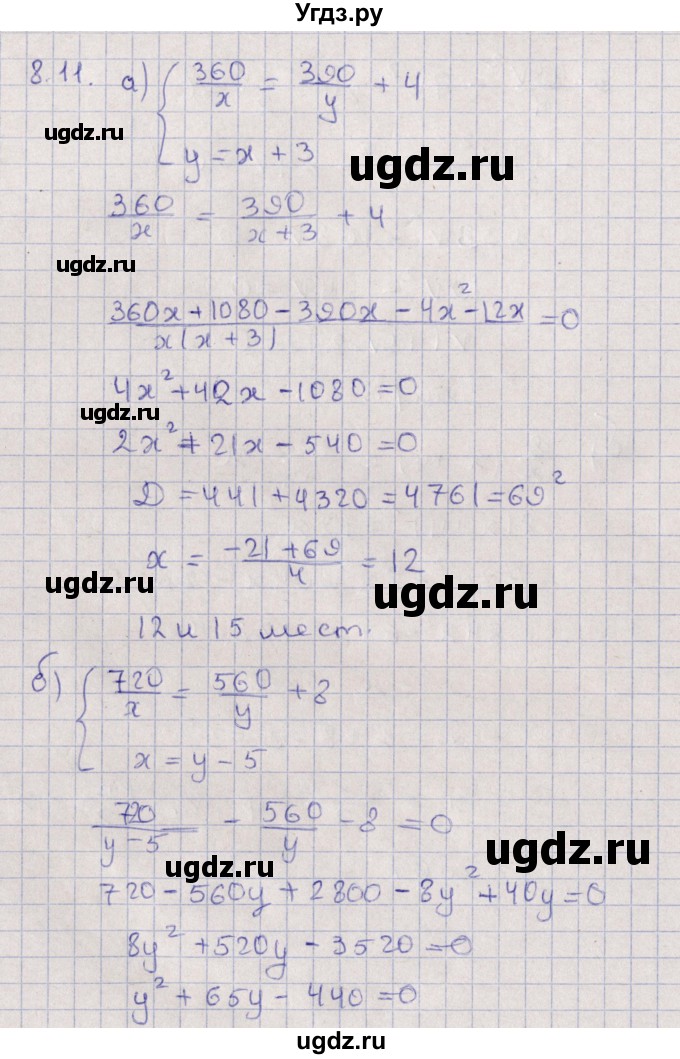 Угдз.ру
8.11. а) { 360/x = 390/y + 4
y = x + 3
ugdz.ru
ugdz.ru
360/x = 390/(x+3) + 4
ugdz.ru
(360x + 1080 - 390x - 4x² - 12x)/(x(x+3)) = 0
4x² + 42x - 1080 = 0
ugdz.ru
2x² + 21x - 540 = 0
D = 441 + 4320 = 4761 = 69²
x = (-21 + 69)/4 = 12
ugdz.ru
ugdz.ru
12 и 15 мест.
б) { 720/x = 560/y + 8
x = y - 5
720/(y-5) - 560/y - 8 = 0
ugdz.ru
ugdz.ru
720 - 560y + 2800 - 8y² + 40y = 0
8y² + 520y - 3520 = 0
y² + 65y - 440 = 0
ugdz.ru